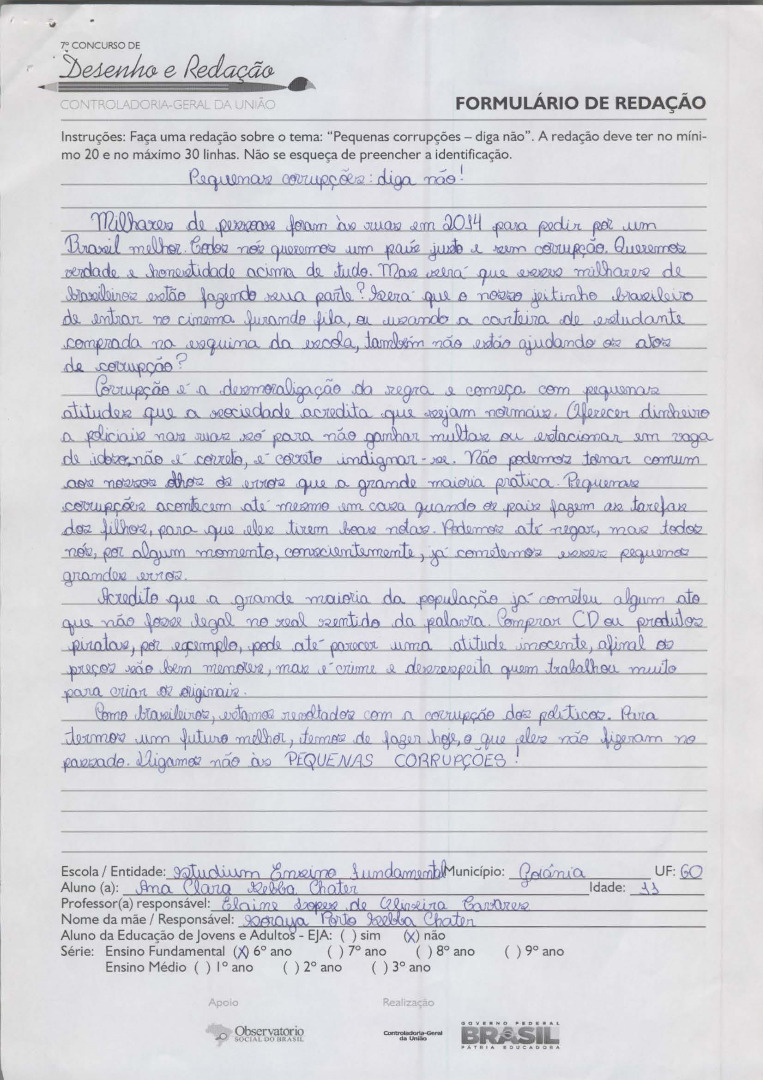 7º CONCURSO DE
Desenho e Redação
CONTROLADORIA-GERAL DA UNIÃO
FORMULÁRIO DE REDAÇÃO
Instruções: Faça uma redação sobre o tema: “Pequenas corrupções – diga não”. A redação deve ter no míni-
mo 20 e no máximo 30 linhas. Não se esqueça de preencher a identificação.
Pequenas corrupções: diga não!
Milhares de pessoas foram às ruas em 2014 para pedir por um
Brasil melhor. Todos nós queremos um país justo e sem corrupção. Queremos
verdade e honestidade acima de tudo. Mas será que esses milhares de
brasileiros estão fazendo sua parte? Será que o nosso jeitinho brasileiro
de entrar no cinema furando fila, ou usando a carteira de estudante
comprada na esquina da escola, também não estão ajudando os atos
de corrupção?
Corrupção é a desmoralização da regra e começa com pequenas
atitudes que a sociedade acredita que sejam normais. Oferecer dinheiro
a policiais nas ruas só para não ganhar multas ou estacionar em vaga
de idoso, não é correto, é correto indignar-se. Não podemos tornar comum
aos nossos olhos os erros que a grande maioria prática. Pequenas
corrupções acontecem até mesmo em casa quando os pais fazem as tarefas
dos filhos, para que eles tirem boas notas. Podemos até negar, mas todos
nós, por algum momento, conscientemente, já cometemos esses pequenos
grandes erros.
Acredito que a grande maioria da população já cometeu algum ato
que não fosse legal no real sentido da palavra. Comprar CD ou produtos
piratas, por exemplo, pode até parecer uma atitude inocente, afinal os
preços são bem menores, mas é crime e desrespeita quem trabalhou muito
para criar os originais.
Como brasileiros, estamos revoltados com a corrupção dos políticos. Para
termos um futuro melhor, temos de fazer hoje, o que eles não fizeram no
passado. Digamos não às PEQUENAS CORRUPÇÕES!
Escola / Entidade: Estudium Ensino Fundamental Município: Goiânia UF: GO
Aluno (a): Ana Clara Sebba Chater Idade: 11
Professor(a) responsável: Elaine Lopes de Oliveira Tavares
Nome da mãe / Responsável: Soraya Porto Sebba Chater
Aluno da Educação de Jovens e Adultos - EJA: ( ) sim (X) não
Série: Ensino Fundamental (X) 6º ano ( ) 7º ano ( ) 8º ano ( ) 9º ano
Ensino Médio ( ) 1º ano ( ) 2º ano ( ) 3º ano
Apoio Realização
Observatório
SOCIAL DO BRASIL
Controladoria-Geral
da União
GOVERNO FEDERAL
BRASIL
PÁTRIA EDUCADORA